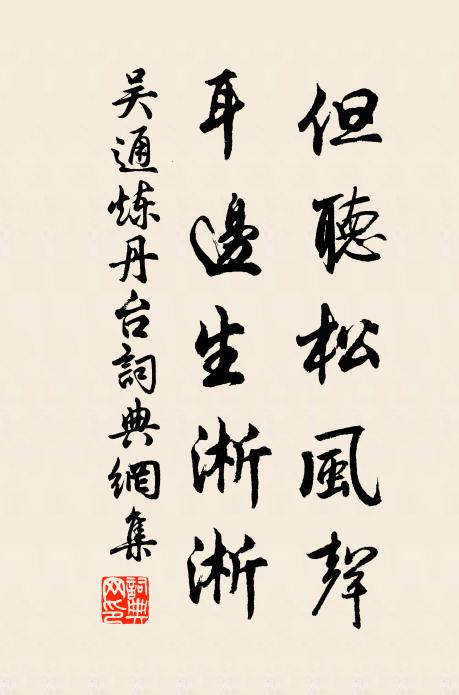 但聽松風聲
耳邊生淅淅
吴通炼丹台詞典網集
詞典网印